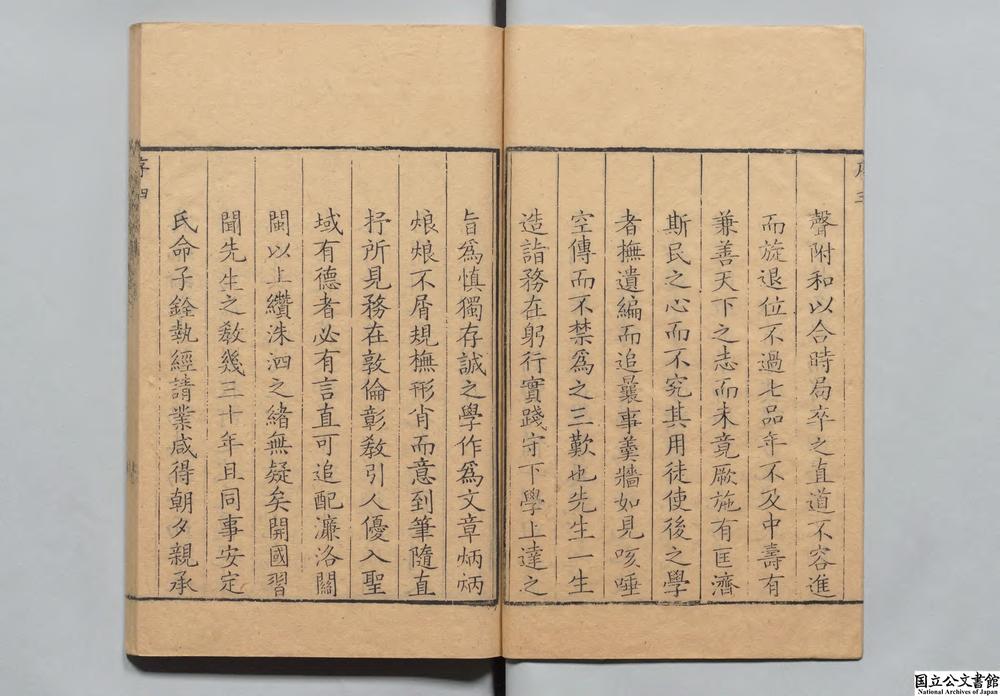 序三
聲附和以合時局卒之直道不容進
而旋退位不過七品年不及中壽有
兼善天下之志而未竟厥施有匡濟
斯民之心而不究其用徒使後之學
者撫遺編而追曩事羹牆如見咳唾
空傳而不禁為之三歎也先生一生
造詣務在躬行實踐守下學上達之
旨為慎獨存誠之學作為文章炳炳
烺烺不屑規橅形肖而意到筆隨直
抒所見務在敦倫彰教引人優入聖
域有德者必有言直可追配濂洛關
閩以上纘洙泗之緒無疑矣開國習
聞先生之教幾三十年且同事安定
氏命子銓執經請業咸得朝夕親承
序四
国立公文書館
National Archives of Japan